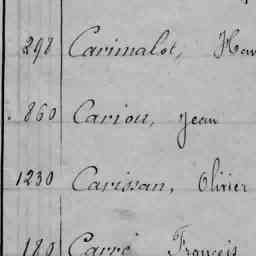 298 Carimalot, Hen
860 Cariou, Jean
1230 Carissan, Olivier
180 Carré François